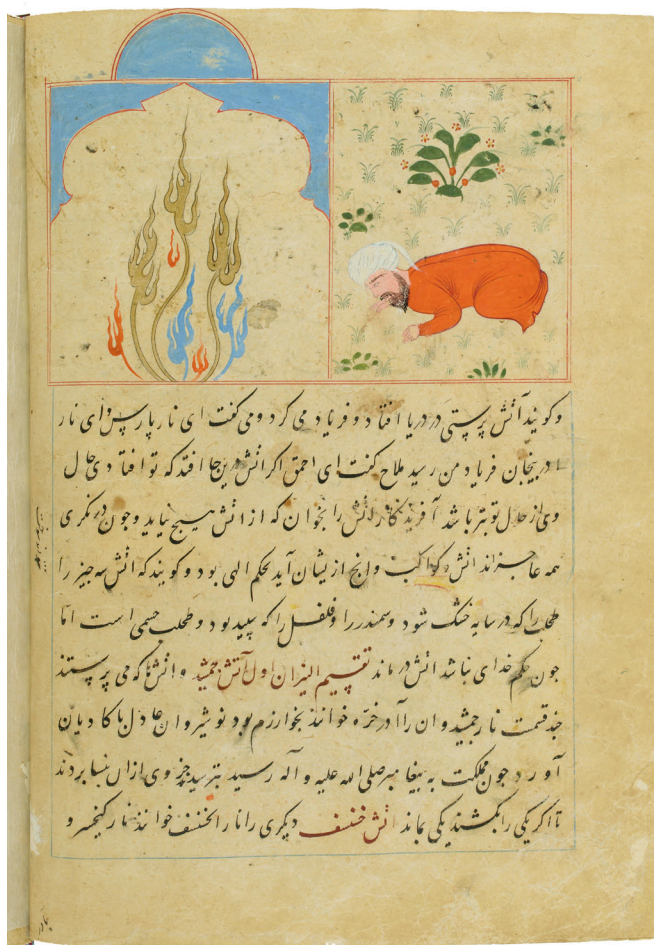 وکویند آتش پرستی در دریا افتاد و فریاد می کرد و می کفت ای نار پارس و ای نار
ادربیجان فریاد من رسید ملاح کفت ای احمق اکر اتش درین جا افتد که تو افتادی حال
وی از حال تو بتر باشد آفریدکار اتش را بخوان که از اتش هیچ نیاید و جون در نکری
همه عاجزاند اتش و کواکب وانچ ازیشان آید بحکم الهی بود و کویند که اتش سه جیز را
طحلب را که در سایه خشک شود و سمندر را و فلفل را که سپید بود و طحلب جسمی است اما
جون حکم خدای نباشد اتش درماند تقسیم النیران اول آتش جمشید و اتشها که می پرستند
جند قسمت نار جمشید و ان را آدر خره خوانند بخوارزم بود نوشیروان عادل با کادیان
آورد جون مملکت به پیغامبر صلی الله علیه و آله رسید بترسیدند جزوی از ان بنسا بردند
تا اکر یکی را بکشند یکی بماند اتش خنسف دیکری را نار الخنسف خوانند نار کیخسرو